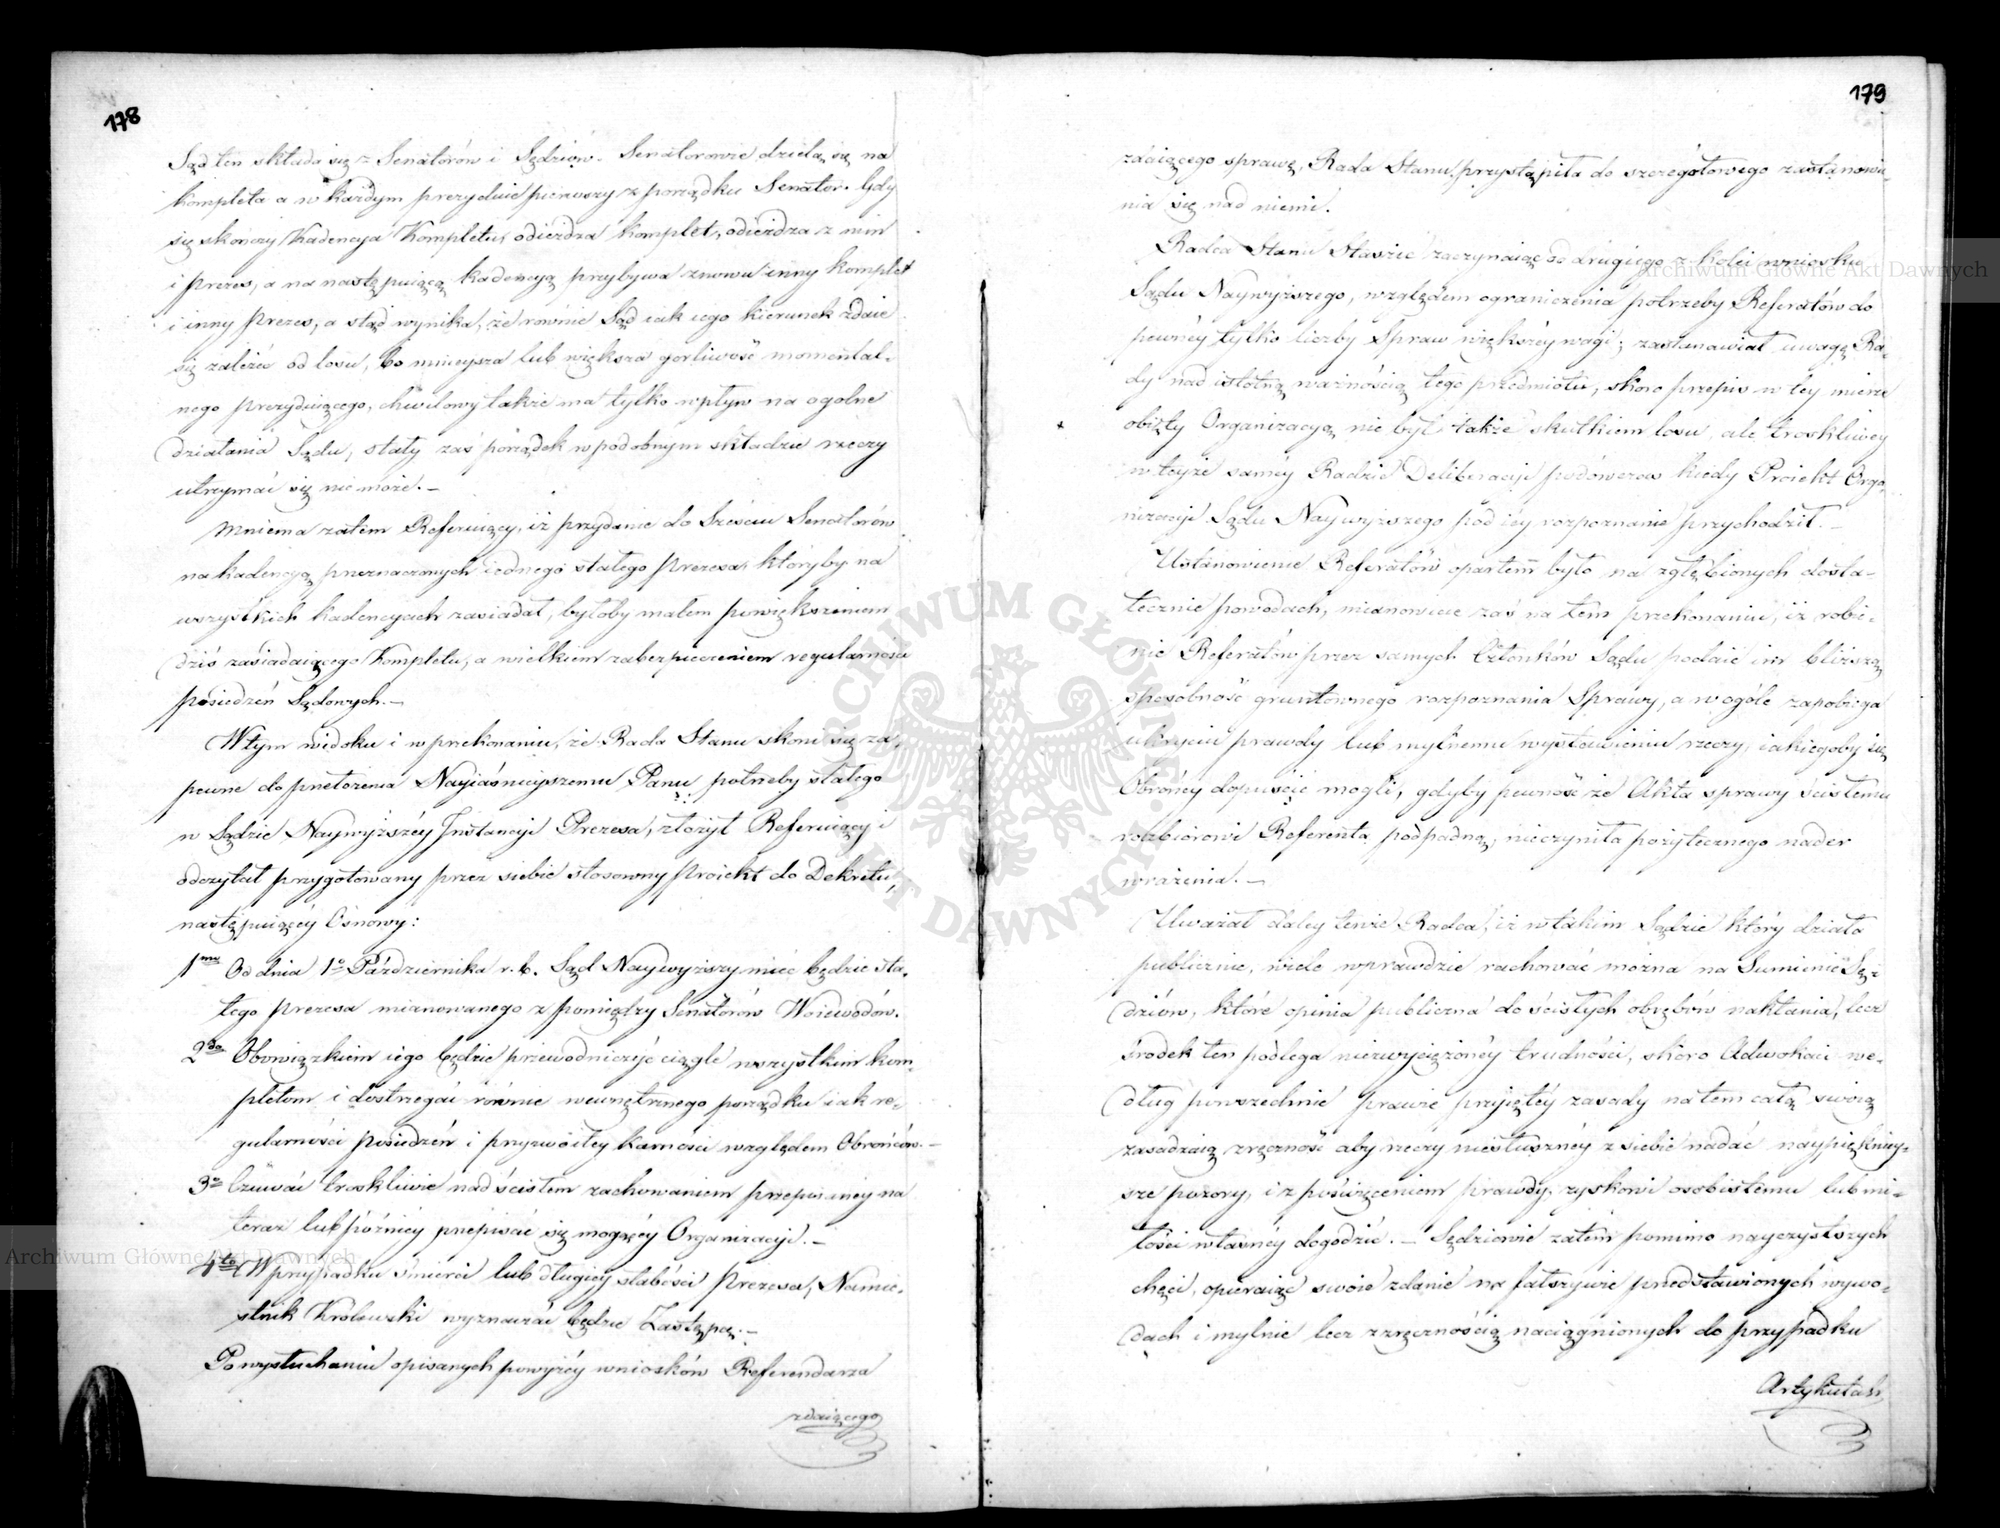 178
Sąd ten składa się z Senatorów i Sędziów. Senatorowie dzielą się na
kompleta a w każdym prezyduie pierwszy z porządku Senator. Gdy
się skończy Kadencya Kompletu, odieżdza komplet, odieżdza z nim
i Prezes, a na następuiącą kadencyą przybywa znowu inny komplet
i inny Prezes, a stąd wynika, że równie Sąd iak iego kierunek zdaie
się zależeć od losu, bo mnieysza lub większa gorliwość momental-
nego prezyduiącego, chwilowy także ma tylko wpływ na ogólne
działania Sądu, stały zaś porządek w podobnym składzie rzeczy
utrzymać się nie może. –
Mniema zatem Referuiący, iż przydanie do Sześciu Senatorów
na kadencyą przeznaczonych iednego stałego Prezesa, któryby na
wszystkich kadencyach zasiadał, byłoby małem powiększeniem
dziś zasiadaiącego Kompletu, a wielkiem zabezpieczeniem regularności
posiedzeń Sądowych. –
W tym widoku i w przekonaniu, że Rada Stanu skłoni się za-
pewne do przełożenia Nayiaśnieyszemu Panu potrzeby stałego
w Sądzie Naywyższéy Instancyi Prezesa, złożył Referuiący i
odczytał przygotowany przez siebie stosowny proiekt do Dekretu,
następuiącéy Osnowy:
1mo Od dnia 1o Października r. b. Sąd Naywyższy mieć będzie sta-
łego Prezesa mianowanego z pomiędzy Senatorów Woiewodów.
2do Obowiązkiem iego będzie przewodniczyć ciągle wszystkim kom-
pletom i dostrzegać równie wewnętrznego porządku iak re-
gularności posiedzeń i przyzwoitey karności względem Obrońców. –
3o Czuwać troskliwie nad ścisłem zachowaniem przepisaney na
teraz lub późniéy przepisać się mogącéy Organizacyi. –
4to W przypadku śmierci lub długiey słabości Prezesa, Namie-
stnik Królewski wyznaczać będzie Zastępcę. –
Po wysłuchaniu opisanych powyżéy wniosków Referendarza
zdaiącego
179
zdaiącego sprawę, Rada Stanu przystąpiła do szczegółowego zastanowie-
nia się nad niemi.
Radca Stanu Staszic zaczynaiąc od drugiego z kolei wniosku
Sądu Naywyższego, względem ograniczenia potrzeby Referatów do
pewnéy tylko liczby Spraw większéy wagi; zastanawiał uwagę Ra-
dy nad istotną ważnością tego przedmiotu, skoro przepis w tey mierze
obięty Organizacyą nie był także skutkiem losu, ale troskliwey
w teyże saméy Radzie Deliberacyi podówczas kiedy Proiekt Orga-
nizacyi Sądu Naywyższego pod iéy rozpoznanie przychodził. –
Ustanowienie Referatów opartem było na zgłębionych dosta-
tecznie powodach, mianowicie zaś na tem przekonaniu, iż robie-
nie Referatów przez samych Członków Sądu podaie im bliższą
sposobność gruntownego rozpoznania Sprawy, a w ogóle zapobiega
ukryciu prawdy lub mylnemu wystawieniu rzeczy, iakiegoby się
Obrońcy dopuścić mogli, gdyby pewność że Akta sprawy ścisłemu
rozbiorowi Referenta podpadną, nie czyniła pożytecznego nader
wrażenia. –
Uważał daley tenże Radca, iż w takim Sądzie który działa
publicznie, wiele wprawdzie rachować można na Sumienie Sę-
dziów, które opinia publiczna do ścisłych obrębów nakłania, lecz
środek ten podlega niezwyciężonéy trudności, skoro Adwokaci we-
dług powszechnie prawie przyiętéy zasady na tem całą swoią
zasadzaią zręczność aby rzeczy niesłusznéy z siebie nadać naypiękniey-
sze pozory, i z poświęceniem prawdy, zyskowi osobistemu lub mi-
łości własnéy dogodzić. – Sędziowie zatem pomimo nayczystszych
chęci, opieraiąc swoie zdanie na fałszywie przedstawionych wywo-
dach i mylnie lecz z zręcznością naciągnionych do przypadku
Artykułach
Archiwum Główne Akt Dawnych
Archiwum Główne Akt Dawnych
ARCHIWUM GŁÓWNE AKT DAWNYCH